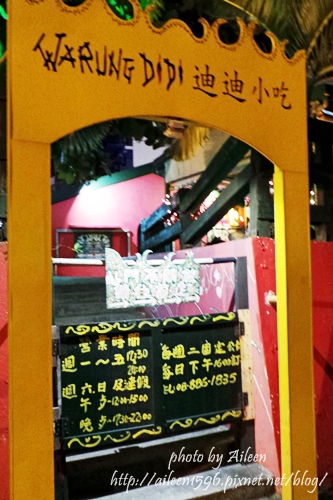 WARUNG DIDI 迪迪小吃
營業時間
週一～五 17:30
22:00
週六日 假
午 12:00-15:00
晚 17:30-22:00
每週二固定公休
每日下午16:00
TEL:08-885-1835
photo by Aileen
http://aileen1596.pixnet.net/blog/